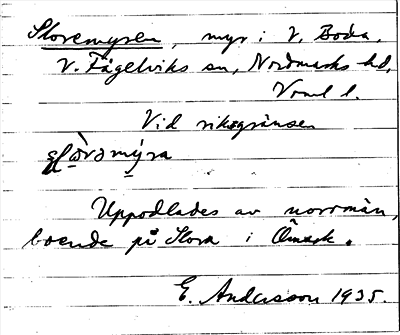 Storemyren, myr i V. Boda,
V. Fågelviks sn, Nordmarks hd,
Vrml l.
Vid riksgränsen
Uppodlades av norrmän,
boende på Stora i Ömark.
E. Andersson 1935.